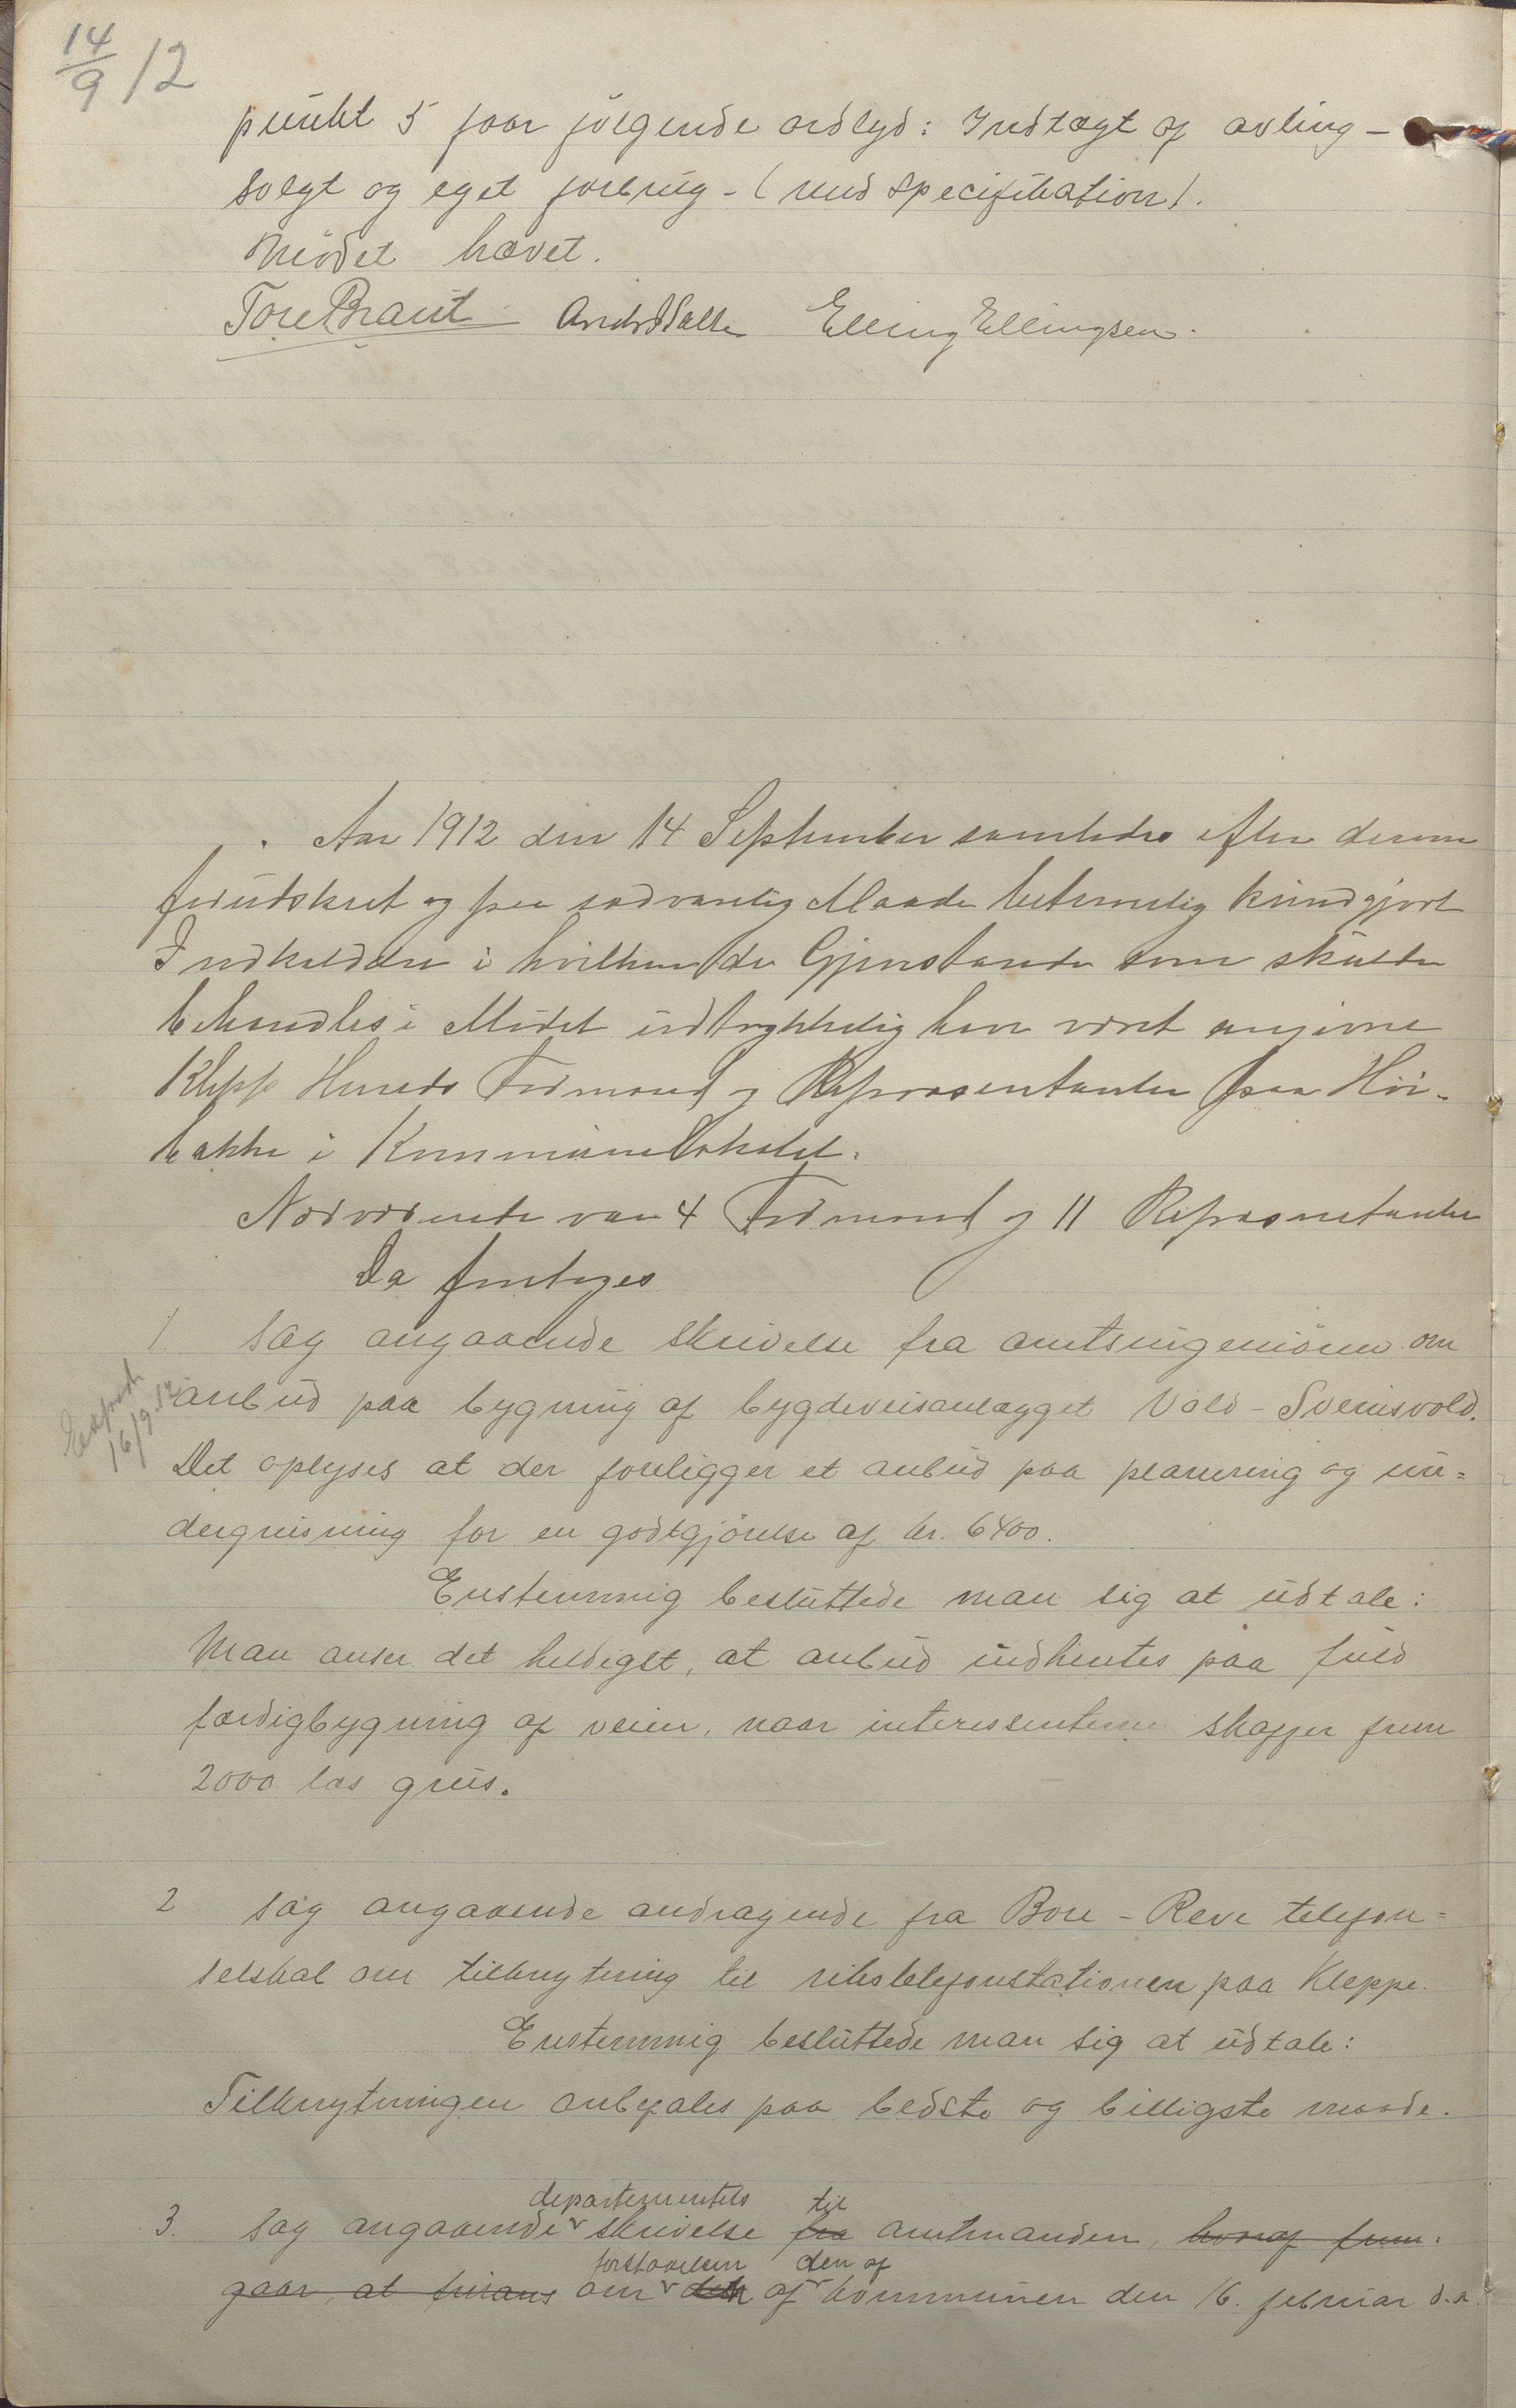 14/9 12
punkt 5 faar følgende ordlyd: Indtægt af avling -
solgt og eget forbrug - (med specifikation).
Mødet hævet.
Tore Braut Elling Ellingsen.
Aar 1912 den 14 September samledes efter derom
forudskeet og paa sædvanlig Maade betimelig kundgjort
Indkaldelse i hvilken de Gjenstande som skulde
behandles i Mødet udtrykkelig har været angivne
Klepp Herreds Formænd og Repræsentanter paa Høi-
bakke i Kommunelokalet.
Nærværende var 4 Formænd og 11 Repræsentanter
Da foretoges
1. Sag angaaende skrivelse fra amtsingeniøren om
anbud paa bygning af bygdeveisanlægget Vold - Svensvold.
Exped. 16/9.12
Det oplyses at der foreligger et anbud paa planering og un=
dergrusning for en godtgjørelse af kr. 6400.
Enstemmig besluttede man sig at udtale:
Man anser det heldigst, at anbud indhentes paa fuld
færdigbygning af veien, naar interessenterne skaffer frem
2000 læs grus.
2 Sag angaaende andragende fra Bore - Reve telefon=
selskab om tilknytning til rikstelefonstationen paa Kleppe.
Enstemmig besluttede man sig at udtale:
Tilknytningen anbefales paa bedste og billigste maade.
departementets til
3. Sag angaaende skrivelse fra amtmanden, hvoraf frem=
forstaaelsen den af
gaar, at finans om af kommunen den 16. februar d.a.